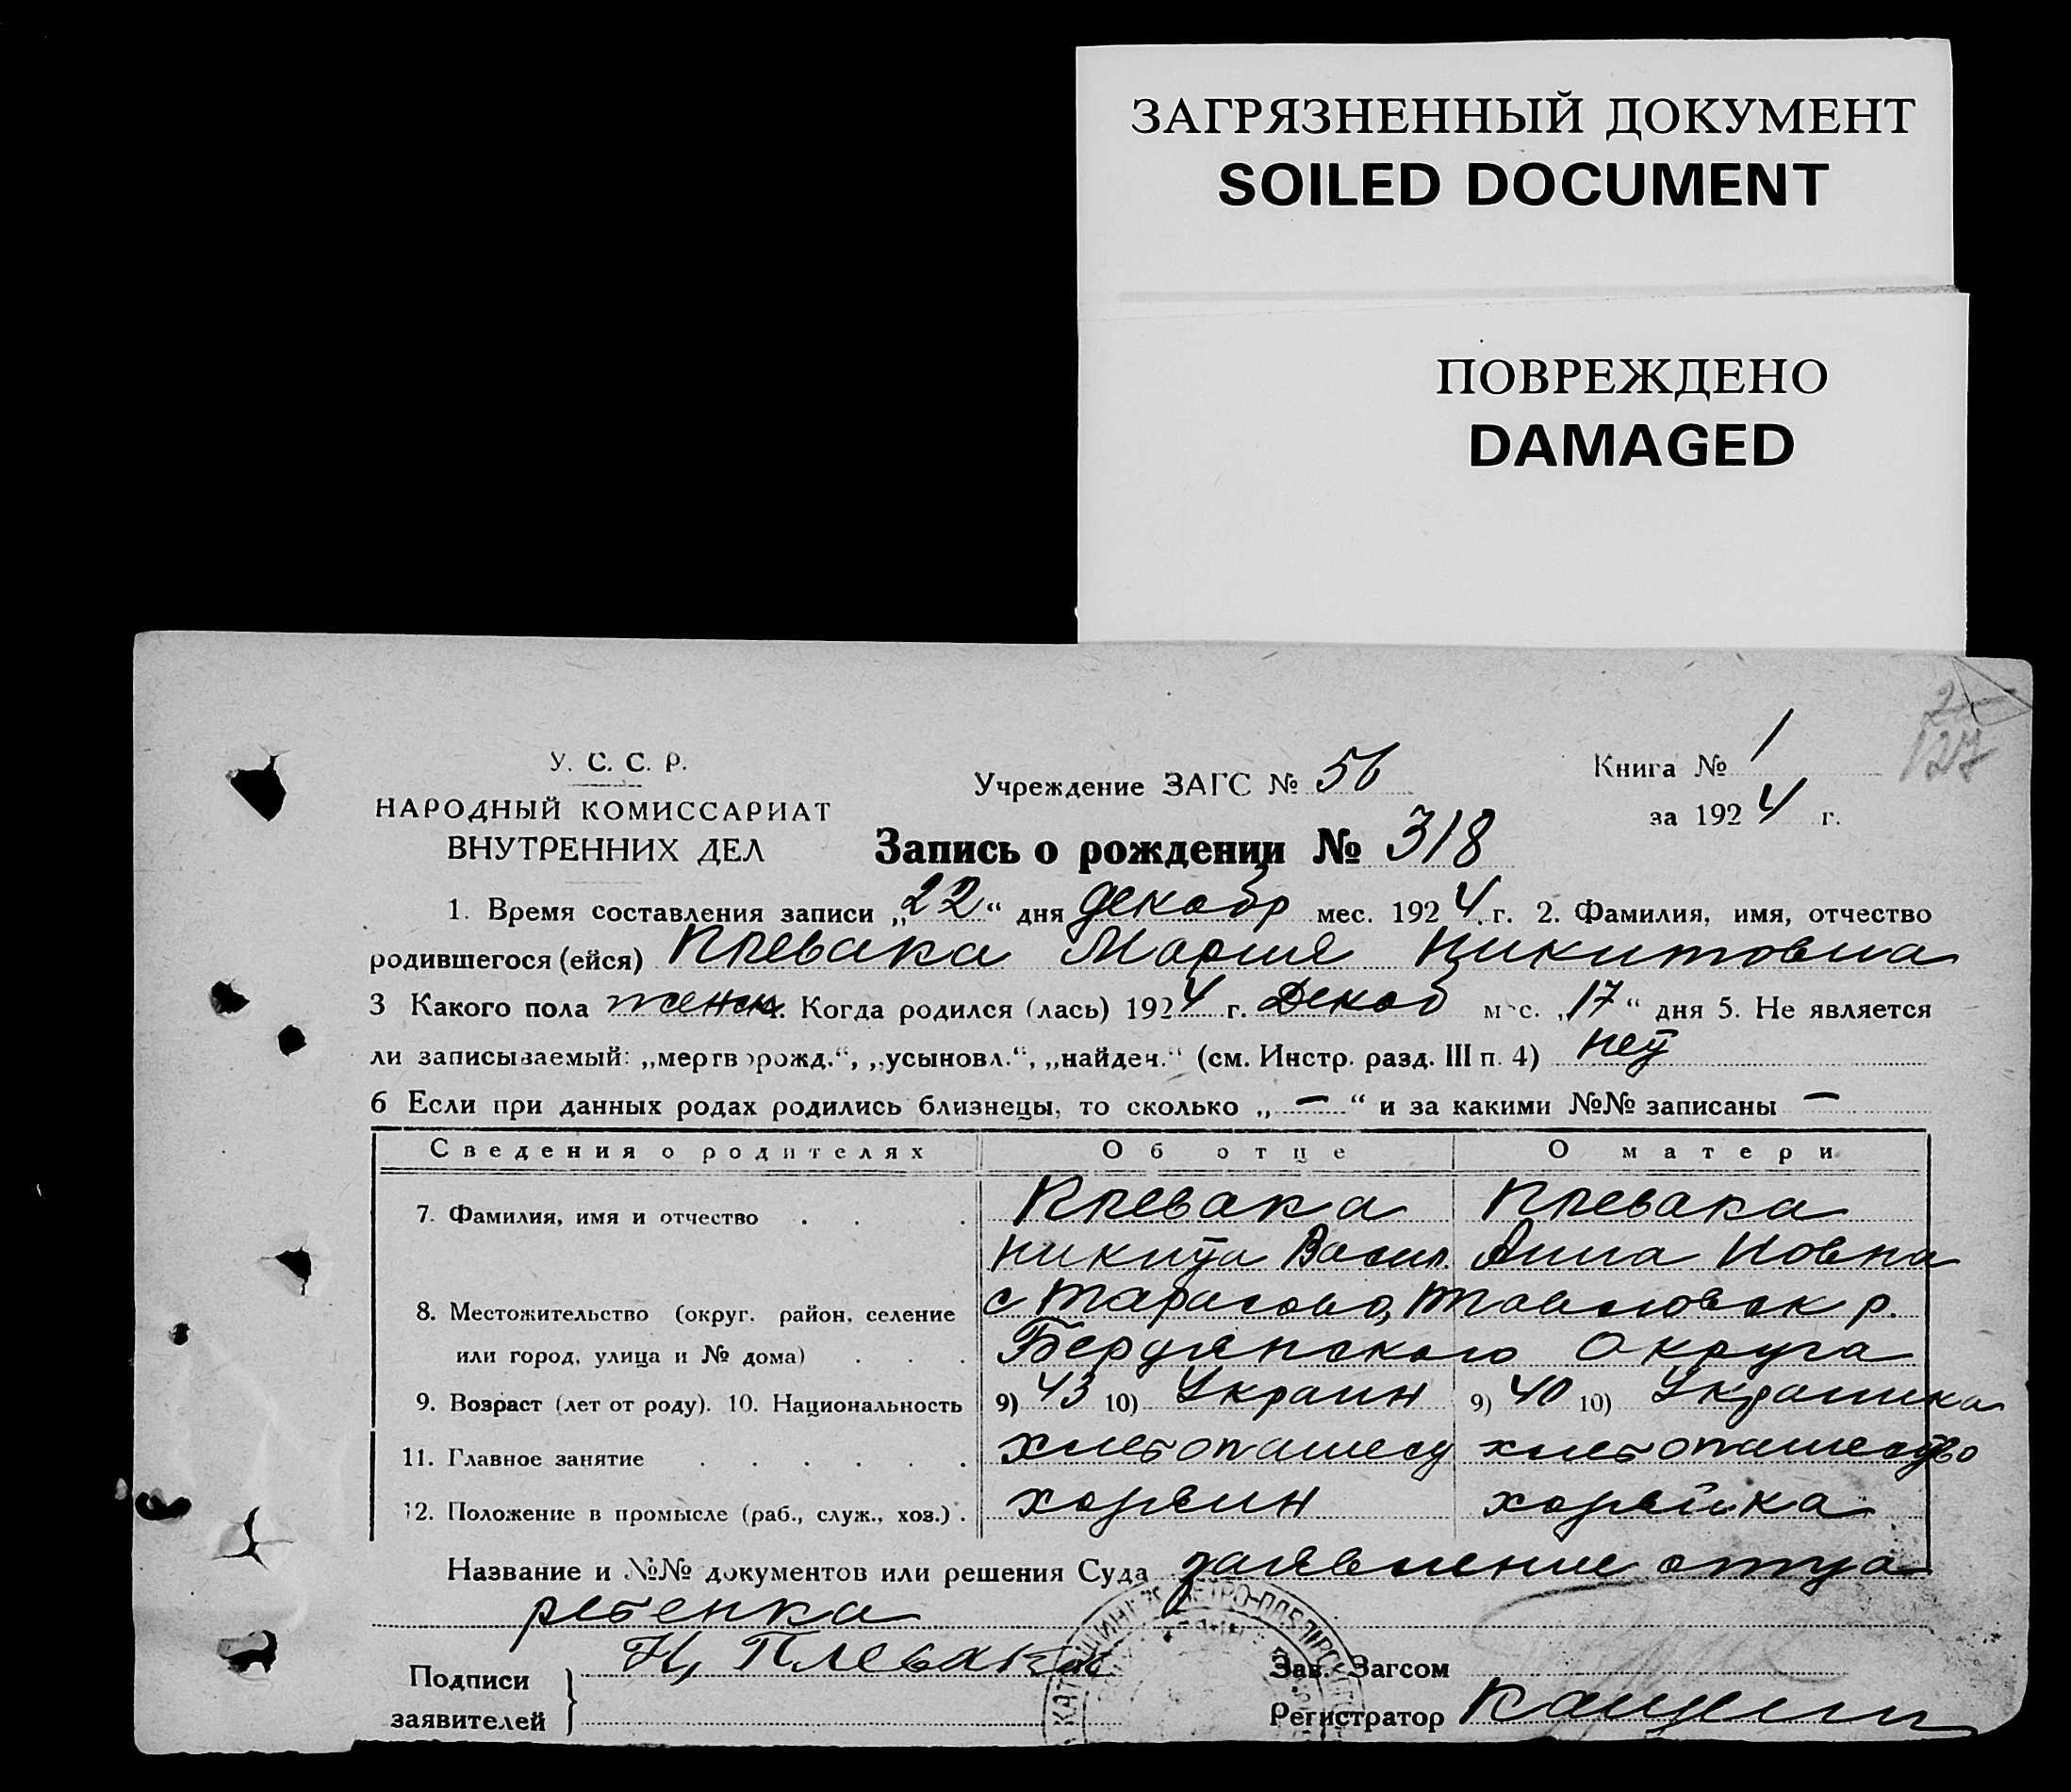 ЗАГРЯЗНЕННЫЙ ДОКУМЕНТ
SOILED DOCUMENT
ПОВРЕЖДЕНО
DAMAGED
127
У. С. С. Р.
НАРОДНЫЙ КОМИССАРИАТ
ВНУТРЕННИХ ДЕЛ
Учреждение ЗАГС № 56
Книга № 1
за 1924 г.
Запись о рождении № 318
1. Время составления записи „22“ дня декабр мес. 1924 г. 2. Фамилия, имя, отчество
родившегося (ейся) Плевака Мария Никитовна
3 Какого пола женск. Когда родился (лась) 1924 г. Декаб мес. „17“ дня 5. Не является
ли записываемый: „мертворожд.“, „усыновл.“, „найден.“ (см. Инстр. разд. III п. 4) нет
6 Если при данных родах родились близнецы, то сколько „—“ и за какими №№ записаны —
Сведения о родителях Об отце О матери
7. Фамилия, имя и отчество . . . Плевака Плевака
Никита Васил. Анна Иовна
8. Местожительство (округ. район, селение с Тарасовк,
или город, улица и № дома) . . . Бердянского Округа
9. Возраст (лет от роду). 10. Национальность 9) 43 10) Украин 9) 40 10) Украинка
11. Главное занятие . . . . . . хлебопашест хлебопашество
12. Положение в промысле (раб., служ., хоз.) . хозяин хозяйка
Название и №№ документов или решения Суда заявление отца
ребенка
Подписи
заявителей
Н, Плевака
Зав. Загсом
Регистратор
ПЕТРО-ПАВЛІВСЬК